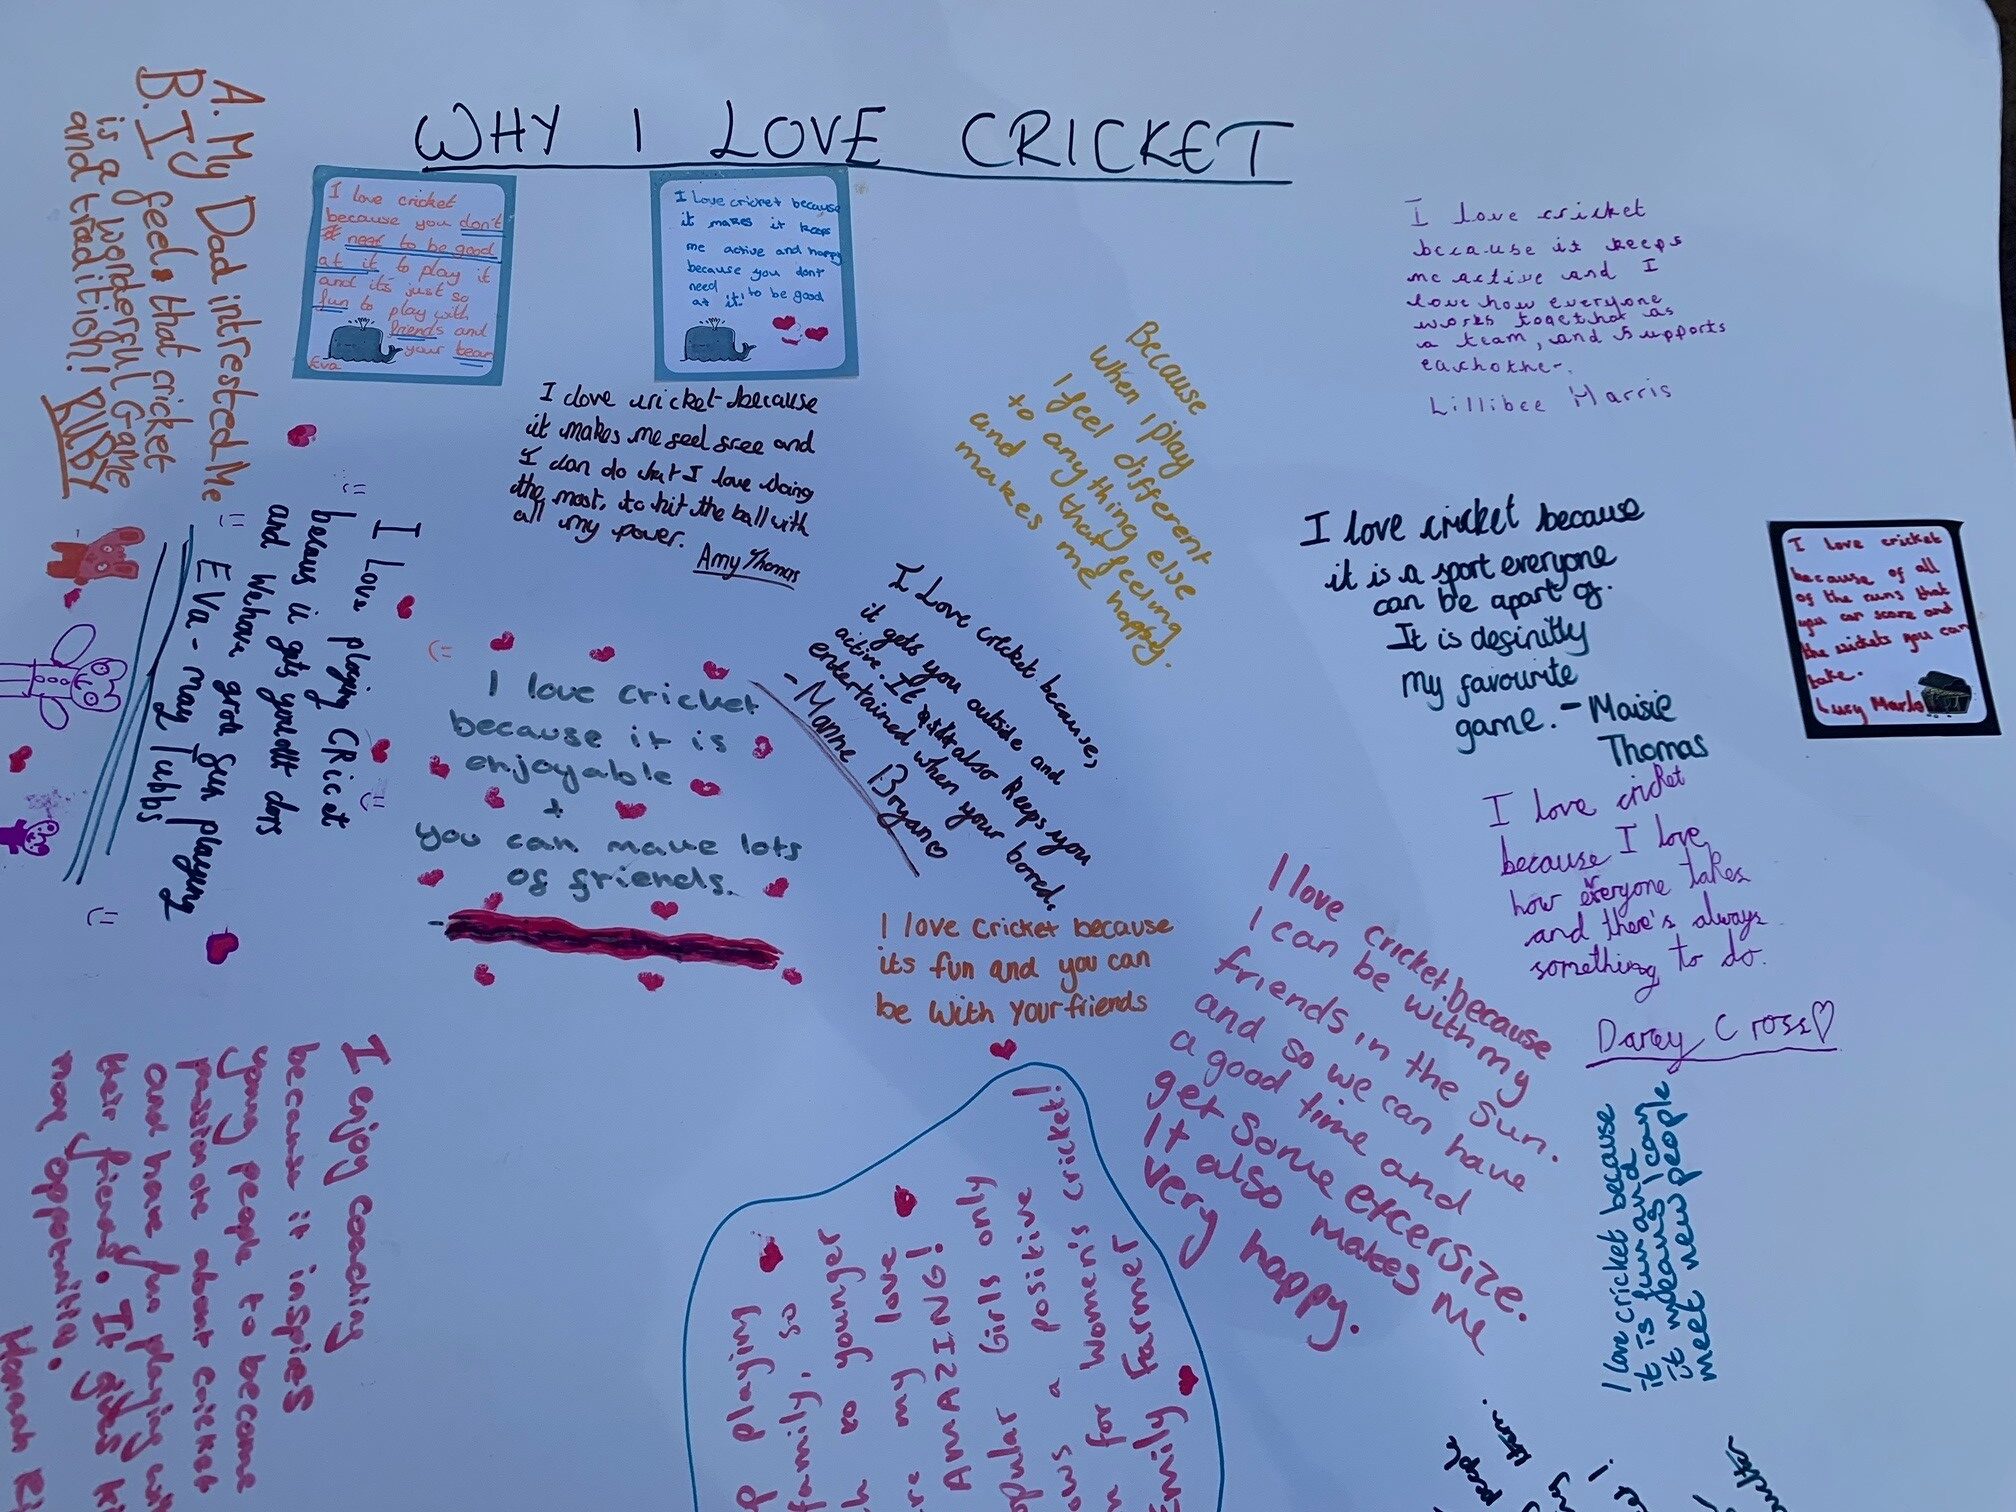 WHY I LOVE CRICKET
A. My Dad intrested Me
B. I feel that cricket
is a wonderful Game
and tradition! KILBY
I love cricket
because you don't
need to be good
at it to play it
and its just so
fun to play with
friends and
your team
Eva
I love cricket because
it makes it keeps
me active and happy
because you dont
need to be good
at it!
I love cricket
because it keeps
me active and I
love how everyone
works togethor as
a team, and supports
eachother.
Lillibee Harris
I love cricket because
it makes me feel free and
I can do what I love doing
the most, to hit the ball with
all my power.
Amy Thomas
Because
when I play
I feel different
to anything else
and that feeling
makes me happy.
I love cricket because
it is a sport everyone
can be apart of.
It is definitly
my favourite
game. - Maisie
Thomas
I love cricket
because of all
of the runs that
you can score and
the wickets you can
take.
Lucy Marlo
I Love playing CRicet
becaus it gets youott dors
and Wehave grat fun playing
Eva-may Tubbs
I love cricket
because it is
enjoyable
+
you can make lots
of friends.
I Love cricket because,
it gets you outside and
active. It also keeps you
entertained when your bored.
- Manne Bryan
I love cricket
because I love
how everyone takes
and there's always
something to do.
Darcy Cross
I love cricket because
its fun and you can
be with your friends
I love cricket because
I can be with my
friends in the sun.
and so we can have
a good time and
get some etcersize.
It also makes me
very happy.
I love cricket because
it is fun and
it means I can
meet new people
I enjoy coaching
because it inspies
young people to become
passionate about cricket
and have fun playing
their friends. It gives
many oppotunitis.
Hannah
playing
family, so
to younger
my love
AMAZING!
Girls only
a positive
for women's cricket!
Emily Farmer
people
them.